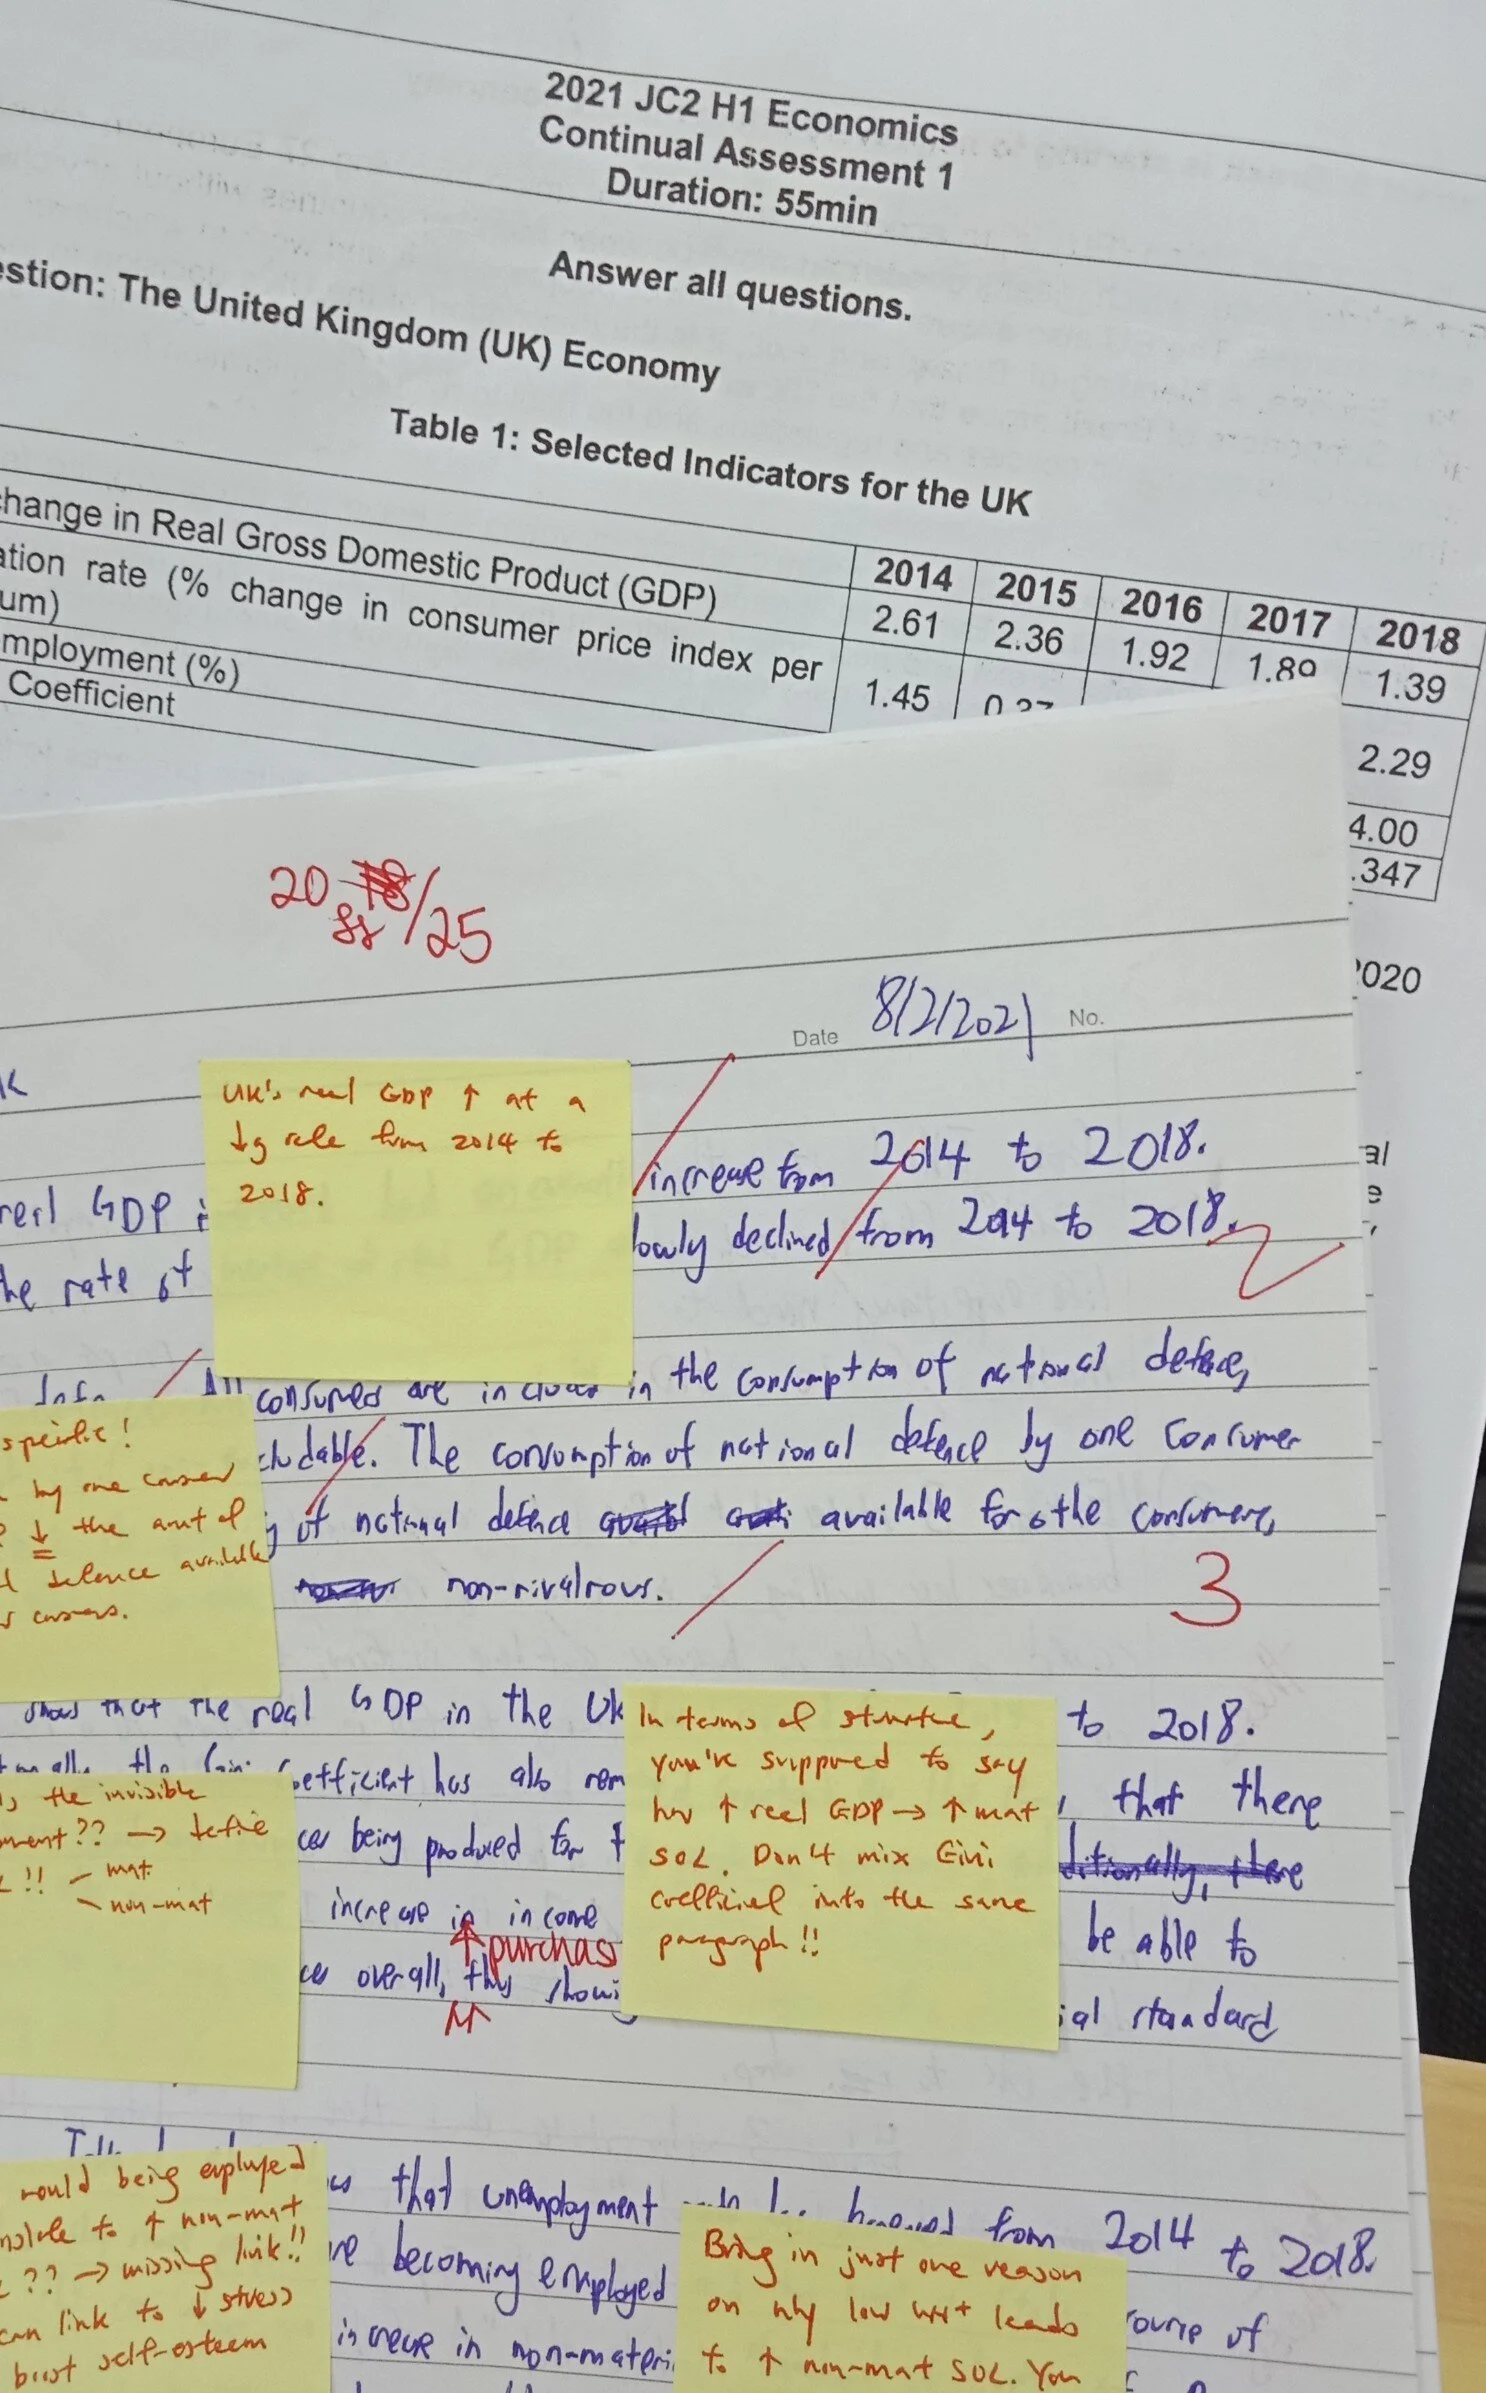 2021 JC2 H1 Economics
Continual Assessment 1
Duration: 55min
Answer all questions.
estion: The United Kingdom (UK) Economy
Table 1: Selected Indicators for the UK
2014 2015 2016 2017 2018
hange in Real Gross Domestic Product (GDP) 2.61 2.36 1.92 1.89 1.39
ation rate (% change in consumer price index per
um) 1.45 2.29
mployment (%) 4.00
Coefficient .347
2020
20 18/25
Date 8/2/2021 No.
UK's real GDP ↑ at a
↓g rate from 2014 to
2018.
real GDP increase from 2014 to 2018.
he rate of lowly declined from 2014 to 2018.
2
consumers are in the consumption of national defence,
cludable. The consumption of national defence by one consumer
of national defence available for othe consumers,
non-rivalrous.
3
specific!
by one consumer
↓ the amt of
defence available
show that the real GDP in the UK to 2018.
efficient has also that there
ces being produced for
increase in income be able to
purchas
ces overall, thus showi ial standard
In terms of structure,
you're supposed to say
how ↑ real GDP → ↑ mat
SOL. Don't mix Gini
coefficient into the same
paragraph!!
the invisible
ment?? → define
!! – mat
– non-mat
that unemployment from 2014 to 2018.
becoming employed
increase in non-materi
would being employed
to ↑ non-mat
?? → missing link!!
can link to ↓ stress
boost self-esteem
Bring in just one reason
on why low unt leads
to ↑ non-mat SOL. You